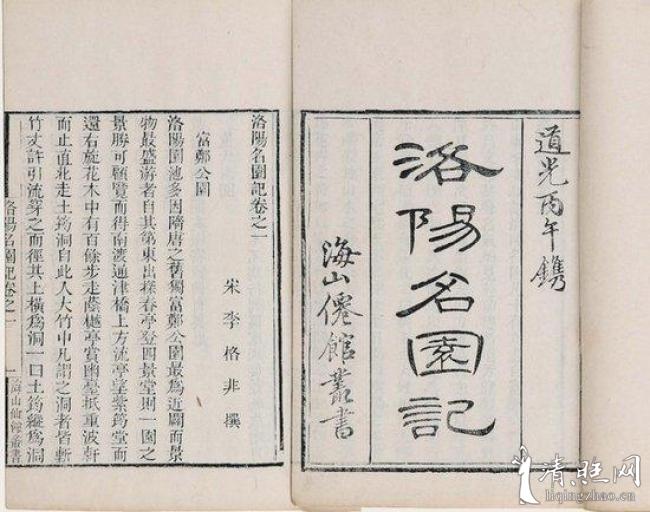 道光丙午鐫
洛陽名園記
海山僊館叢書
洛陽名園記卷之一
宋李格非撰
富鄭公園
洛陽園池多因隋唐之舊獨富鄭公園最爲近闢而景
物最盛游者自其第東出探春亭登四景堂則一園之
景勝可顧覽而得南渡通津橋上方流亭望紫筠堂而
還右旋花木中有百餘步走蔭樾亭賞幽臺抵重波軒
而止直北走土筠洞自此入大竹中凡謂之洞者皆斬
竹丈許引流穿之而徑其上橫爲洞一曰土筠縱爲洞
洛陽名園記卷之一 一 海山仙館叢書
清照网
liqingzhao.cn